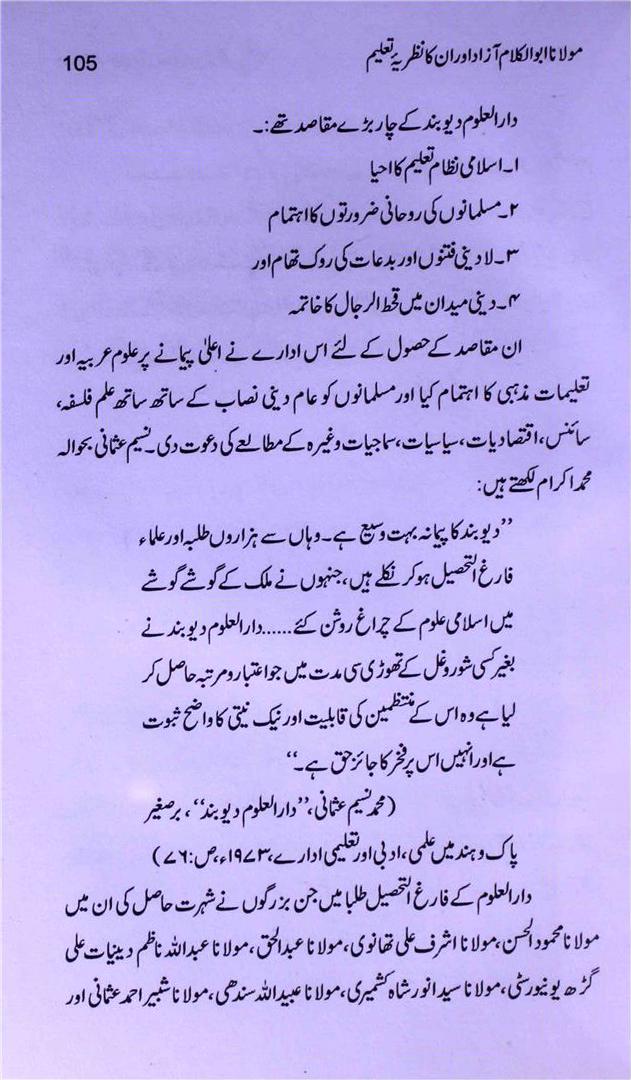 مولانا ابوالکلام آزاد اور ان کا نظریۂ تعلیم 105
دارالعلوم دیوبند کے چار بڑے مقاصد تھے:۔
۱۔ اسلامی نظام تعلیم کا احیا
۲۔ مسلمانوں کی روحانی ضرورتوں کا اہتمام
۳۔ لا دینی فتنوں اور بدعات کی روک تھام اور
۴۔ دینی میدان میں قحط الرجال کا خاتمہ
ان مقاصد کے حصول کے لئے اس ادارے نے اعلیٰ پیمانے پر علوم عربیہ اور
تعلیمات مذہبی کا اہتمام کیا اور مسلمانوں کو عام دینی نصاب کے ساتھ ساتھ علم فلسفہ،
سائنس، اقتصادیات، سیاسیات، سماجیات وغیرہ کے مطالعے کی دعوت دی۔ نسیم عثمانی بحوالہ
محمد اکرام لکھتے ہیں:
’’دیوبند کا پیمانہ بہت وسیع ہے۔ وہاں سے ہزاروں طلبہ اور علماء
فارغ التحصیل ہو کر نکلے ہیں، جنہوں نے ملک کے گوشے گوشے
میں اسلامی علوم کے چراغ روشن کئے......دارالعلوم دیوبند نے
بغیر کسی شور و غل کے تھوڑی سی مدت میں جو اعتبار و مرتبہ حاصل کر
لیا ہے وہ اس کے منتظمین کی قابلیت اور نیک نیتی کا واضح ثبوت
ہے اور انہیں اس پر فخر کا جائز حق ہے۔‘‘
(محمد نسیم عثمانی، ’’دارالعلوم دیوبند‘‘، برصغیر
پاک و ہند میں علمی، ادبی اور تعلیمی ادارے، ۱۹۷۳ء، ص:۷۶)
دارالعلوم کے فارغ التحصیل طلبا میں جن بزرگوں نے شہرت حاصل کی ان میں
مولانا محمود الحسن، مولانا اشرف علی تھانوی، مولانا عبدالحق، مولانا عبداللہ ناظم دینیات علی
گڑھ یونیورسٹی، مولانا سید انور شاہ کشمیری، مولانا عبیداللہ سندھی، مولانا شبیر احمد عثمانی اور